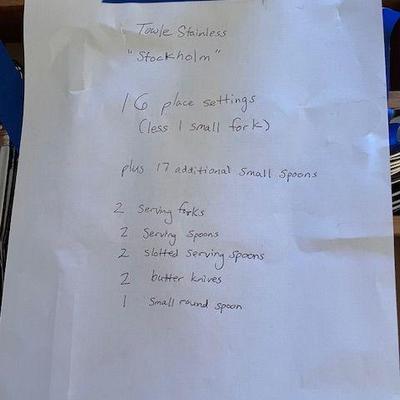 Towle Stainless
"Stockholm"
16 place settings
(less 1 small fork)
plus 17 additional small spoons
2 serving forks
2 serving spoons
2 slotted serving spoons
2 butter knives
1 small round spoon